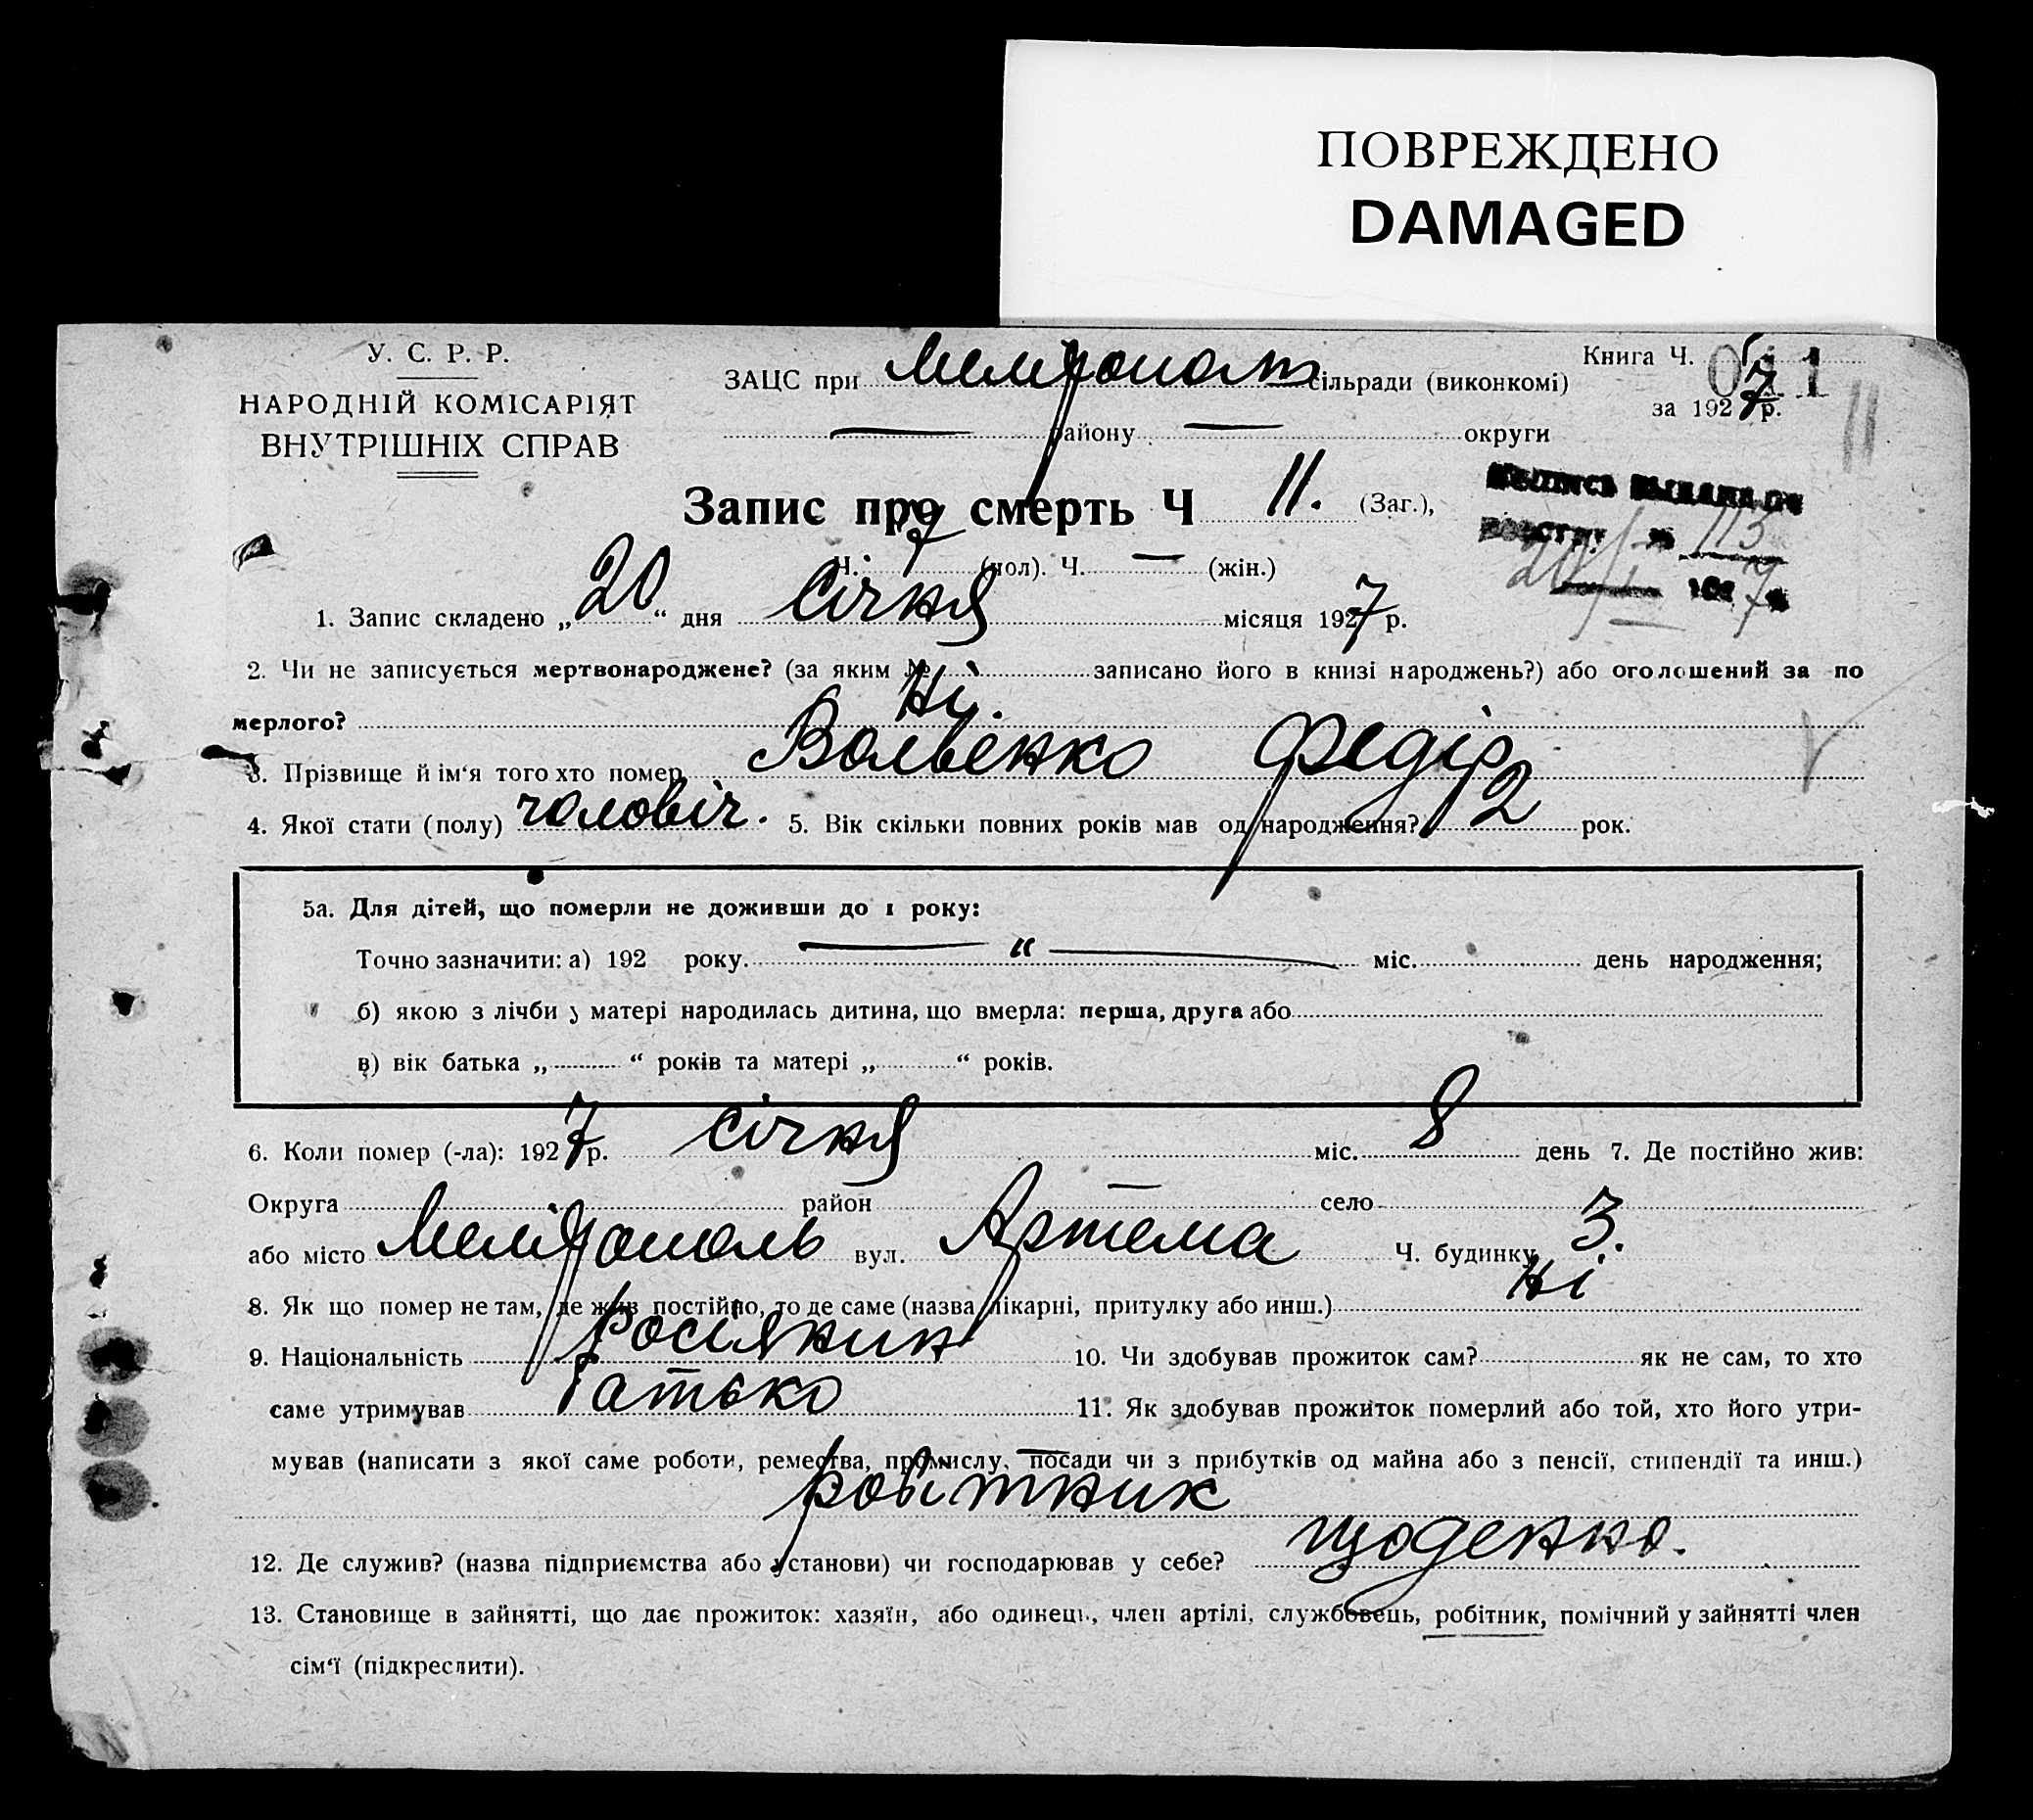 ПОВРЕЖДЕНО
DAMAGED
У. С. Р. Р.
НАРОДНІЙ КОМІСАРІЯТ
ВНУТРІШНІХ СПРАВ
ЗАЦС при сільради (виконкомі)
Книга Ч.
за 1927 р.
— району — округи
Запис про смерть Ч 11. (Заг.),
Ч. 7 (чол). Ч. — (жін.)
113
1. Запис складено „20“ дня Січня місяця 1927 р.
2. Чи не записується мертвонароджене? (за яким № записано його в книзі народжень?) або оголошений за по
мерлого? Ні.
3. Прізвище й ім‘я того хто помер Вольвенко Федір
4. Якої стати (полу) чоловіч. 5. Вік скільки повних років мав од народження? 2 рок.
5а. Для дітей, що померли не доживши до 1 року:
Точно зазначити: а) 192 року. — “ — міс. день народження;
б) якою з лічби у матері народилась дитина, що вмерла: перша, друга або
в) вік батька „ “ років та матері „ “ років.
6. Коли помер (-ла): 1927 р. січня міс. 8 день 7. Де постійно жив:
Округа район — село
або місто Мелітополь вул. Артема Ч. будинку 3.
8. Як що помер не там, де жив постійно, то де саме (назва лікарні, притулку або инш.) Ні
9. Національність росіянин 10. Чи здобував прожиток сам? як не сам, то хто
саме утримував батько 11. Як здобував прожиток померлий або той, хто його утри-
мував (написати з якої саме роботи, ремества, промислу, посади чи з прибутків од майна або з пенсії, стипендії та инш.)
робітник
12. Де служив? (назва підприємства або установи) чи господарював у себе? щоденно.
13. Становище в зайнятті, що дає прожиток: хазяїн, або одинець, член артілі, службовець, робітник, помічний у зайнятті член
сім‘ї (підкреслити).